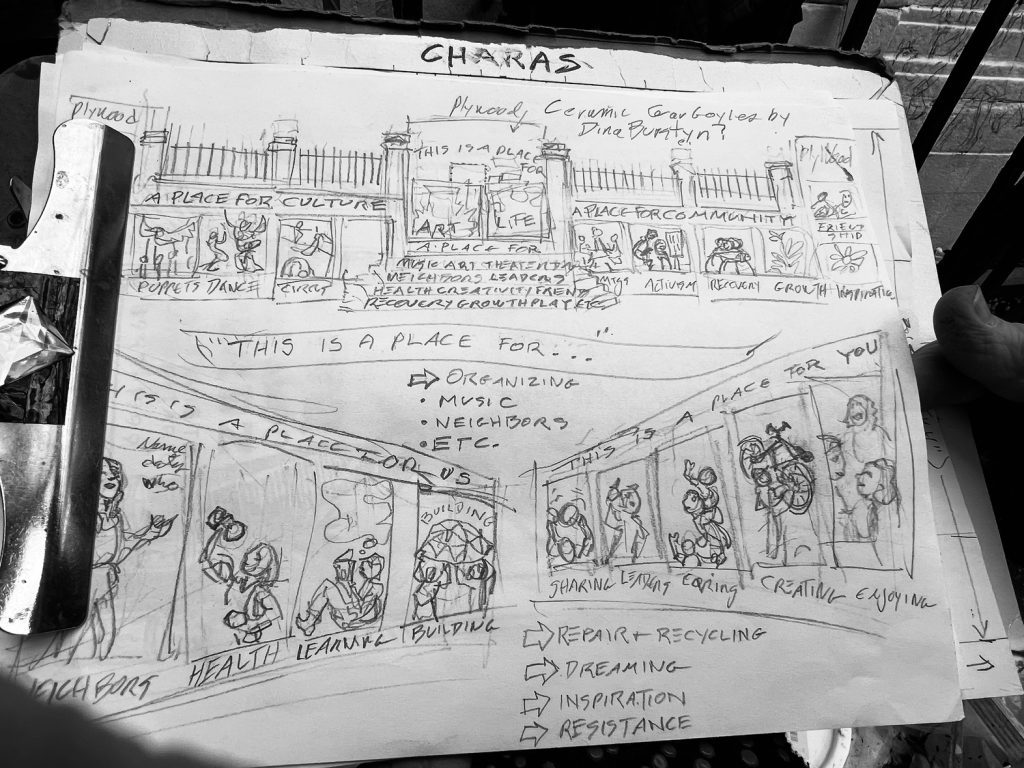 CHARAS
Plywood
Plywood Ceramic Gargoyles by
Dina Burstyn?
THIS IS A PLACE
FOR
Plywood
A PLACE FOR CULTURE
ART
LIFE
A PLACE FOR COMMUNITY
FRIEND
SHIP
A PLACE FOR
MUSIC ART THEATER
NEIGHBORS LEADERS
HEALTH CREATIVITY
RECOVERY GROWTH PLAY ETC
PUPPETS DANCE CIRCUS
ACTIVISM RECOVERY GROWTH INSPIRATION
"THIS IS A PLACE FOR..."
ORGANIZING
• MUSIC
• NEIGHBORS
• ETC.
IS A PLACE FOR US
THIS IS A PLACE FOR YOU
Name
who
BUILDING
NEIGHBORS HEALTH LEARNING BUILDING
SHARING LEADERS CREATING ENJOYING
REPAIR + RECYCLING
DREAMING
INSPIRATION
RESISTANCE